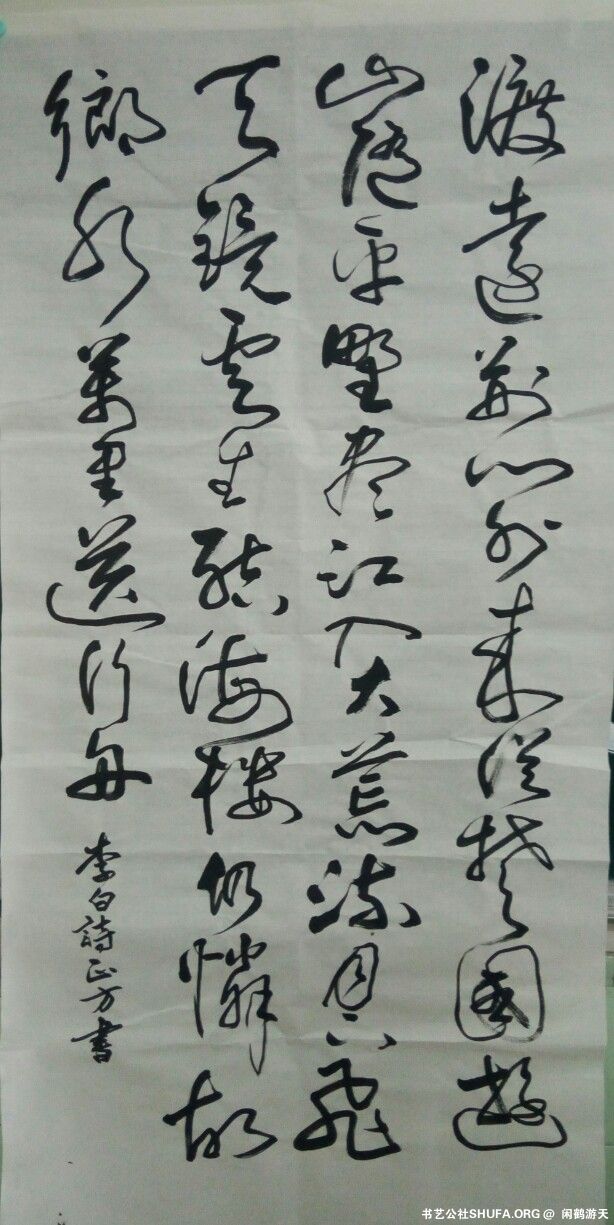 渡遠荆門外来從楚國遊
山隨平野盡江入大荒流月下飛
天鏡雲生結海樓仍憐故
鄉水萬里送行舟
李白詩正方書
书艺公社SHUFA.ORG @ 闲鹤游天